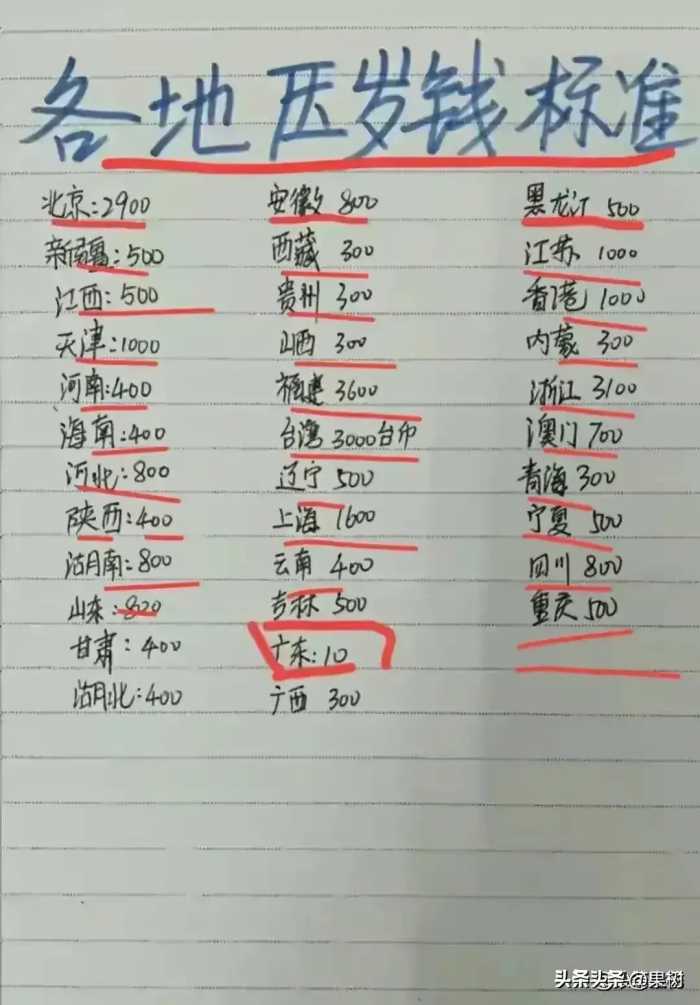 各地压岁钱标准
北京:2900
新疆:500
江西:500
天津:1000
河南:400
海南:400
河北:800
陕西:400
湖南:800
山东:800
甘肃:400
湖北:400
安徽 800
西藏 300
贵州 300
山西 300
福建 3600
台湾 3000台币
辽宁 500
上海 1600
云南 400
吉林 500
广东:10
广西 300
黑龙江 500
江苏 1000
香港 1000
内蒙 300
浙江 3100
澳门 700
青海 300
宁夏 500
四川 800
重庆 500
头条头条@果树